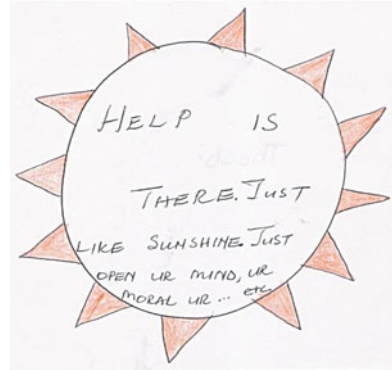 HELP IS
THERE. JUST
LIKE SUNSHINE. JUST
OPEN UR MIND, UR
MORAL UR ... etc.